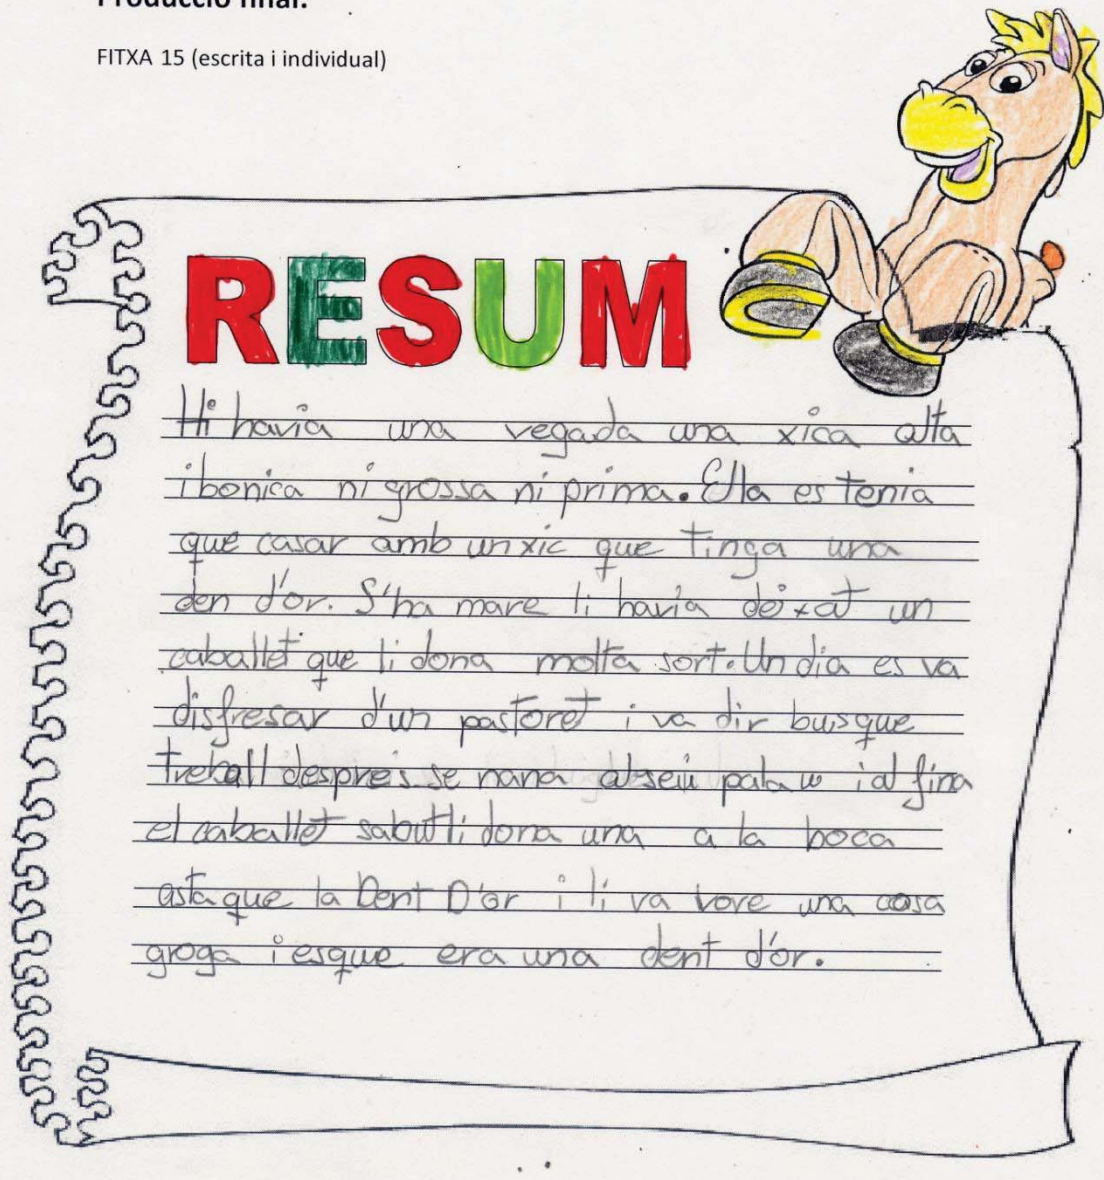 Producció final.
FITXA 15 (escrita i individual)
RESUM
Hi havia una vegada una xica alta
i bonica ni grossa ni prima. Ella es tenia
que casar amb un xic que tinga una
den d'or. S'ha mare li havia deixat un
caballet que li dona molta sort. Un dia es va
disfresar d'un pastoret i va dir busque
treball despres se nana al seu palau i al fina
el caballet sabut li dona una a la boca
asta que la Dent D'or i li va vore una cosa
groga i esque era una dent d'or.